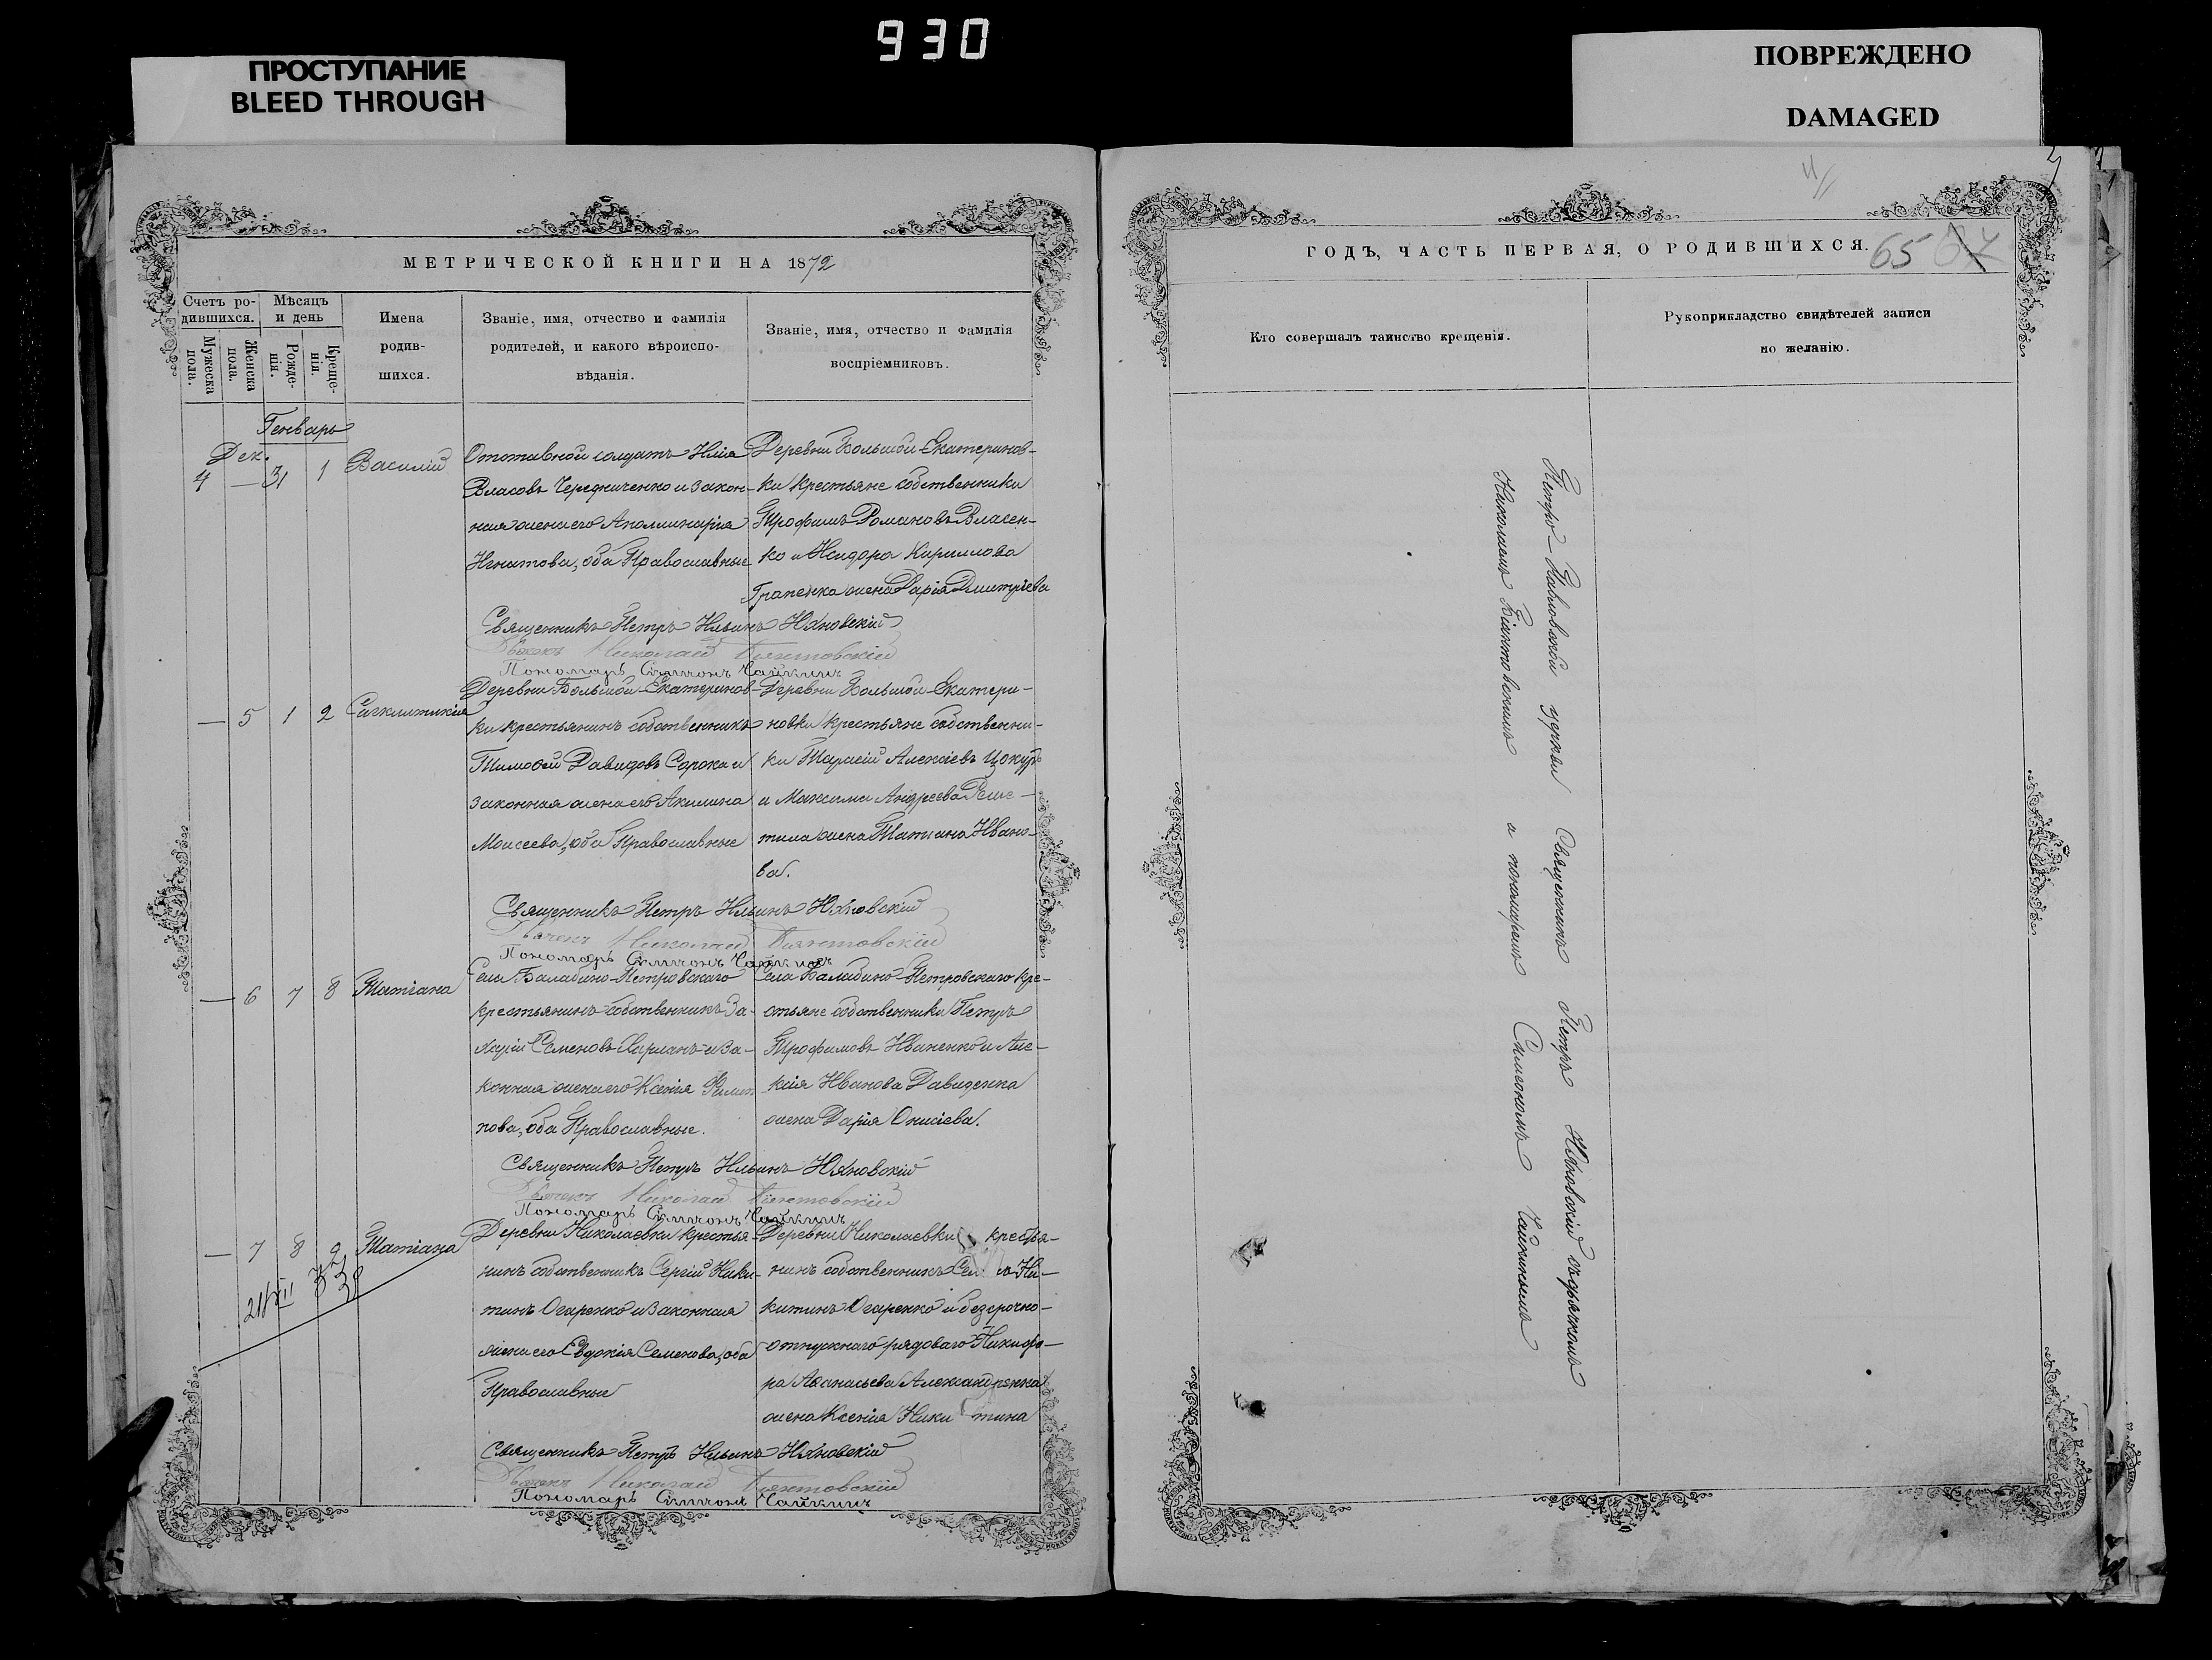 930
ПРОСТУПАНИЕ
BLEED THROUGH
ПОВРЕЖДЕНО
DAMAGED
МЕТРИЧЕСКОЙ КНИГИ НА 1872
Счетъ ро-
дившихся.
Мѣсяцъ
и день
Мужеска
пола.
Женска
пола.
Рожде-
нія.
Креще-
нія.
Имена
родив-
шихся.
Званіе, имя, отчество и фамилія
родителей, и какого вѣроиспо-
вѣданія.
Званіе, имя, отчество и фамилія
воспріемниковъ.
Генварь
Дек.
4 — 31 1 Василій
Отставной солдатъ Илія
Власовъ Чередниченко и закон-
ная жена его Аполлинарія
Игнатова, оба Православные
Деревни Большой Екатеринов-
ки крестьяне собственники
Трофимъ Романовъ Власен-
ко и Исидора Кириллова
жена Дарія Дмитріева
Священникъ Петръ Ильинъ Яновскій
Дьячекъ Николай Біянтовскій
Пономарь Симеонъ Чайкинъ
— 5 1 2
Деревни Большой Екатеринов-
ки крестьянинъ собственникъ
Тимофей Давидовъ Сорока и
законная жена его Акилина
Моисеева, оба Православные
Деревни Большой Екатери-
новки крестьяне собственни-
ки Тарасій Алексіевъ Цокуръ
и Максима Андреева Реше-
тила жена Татіана Ивано-
ва.
Священникъ Петръ Ильинъ Яновскій
Дьячекъ Николай Біянтовскій
Пономарь Симеонъ Чайкинъ
— 6 7 8 Татіана
Села Балабино-Петровскаго
крестьянинъ собственникъ За-
харій Семеновъ Харланъ и за-
конная жена его Ксенія Филип
пова, оба Православные.
Села Балабино-Петровскаго кре-
стьяне собственники Петръ
Трофимовъ Иваненко и Але-
ксія Иванова Давиденка
жена Дарія Онисіева.
Священникъ Петръ Ильинъ Яновскій
Дьячекъ Николай Біянтовскій
Пономарь Симеонъ Чайкинъ
— 7 8 9 Татіана
Деревни Николаевки крестья-
нинъ собственникъ Сергій Ники-
тинъ Огаренко и законная
жена его Евдокія Семенова, оба
Православные
Деревни Николаевки крестья-
нинъ собственникъ Ни-
китинъ Огаренко и безсрочно-
отпускнаго рядоваго Никифо-
ра Афанасьева Александренка
жена Ксенія Никитина
Священникъ Петръ Ильинъ Яновскій
Дьячекъ Николай Біянтовскій
Пономарь Симеонъ Чайкинъ
ГОДЪ, ЧАСТЬ ПЕРВАЯ, О РОДИВШИХСЯ.
65
Кто совершалъ таинство крещенія.
Рукоприкладство свидѣтелей записи
по желанію.
Петро-Павловской церкви Священникъ Петръ Яновскій съ дьячкомъ
Николаемъ Біянтовскимъ и пономаремъ Симеономъ Чайкинымъ